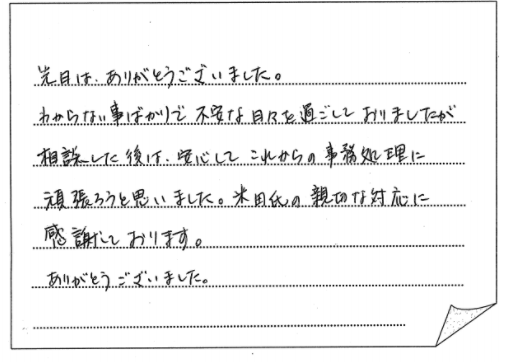 先日は、ありがとうございました。
わからない事ばかりで不安な日々を過ごしておりましたが
相談した後は、安心してこれからの事務処理に
頑張ろうと思いました。米田氏の親切な対応に
感謝しております。
ありがとうございました。